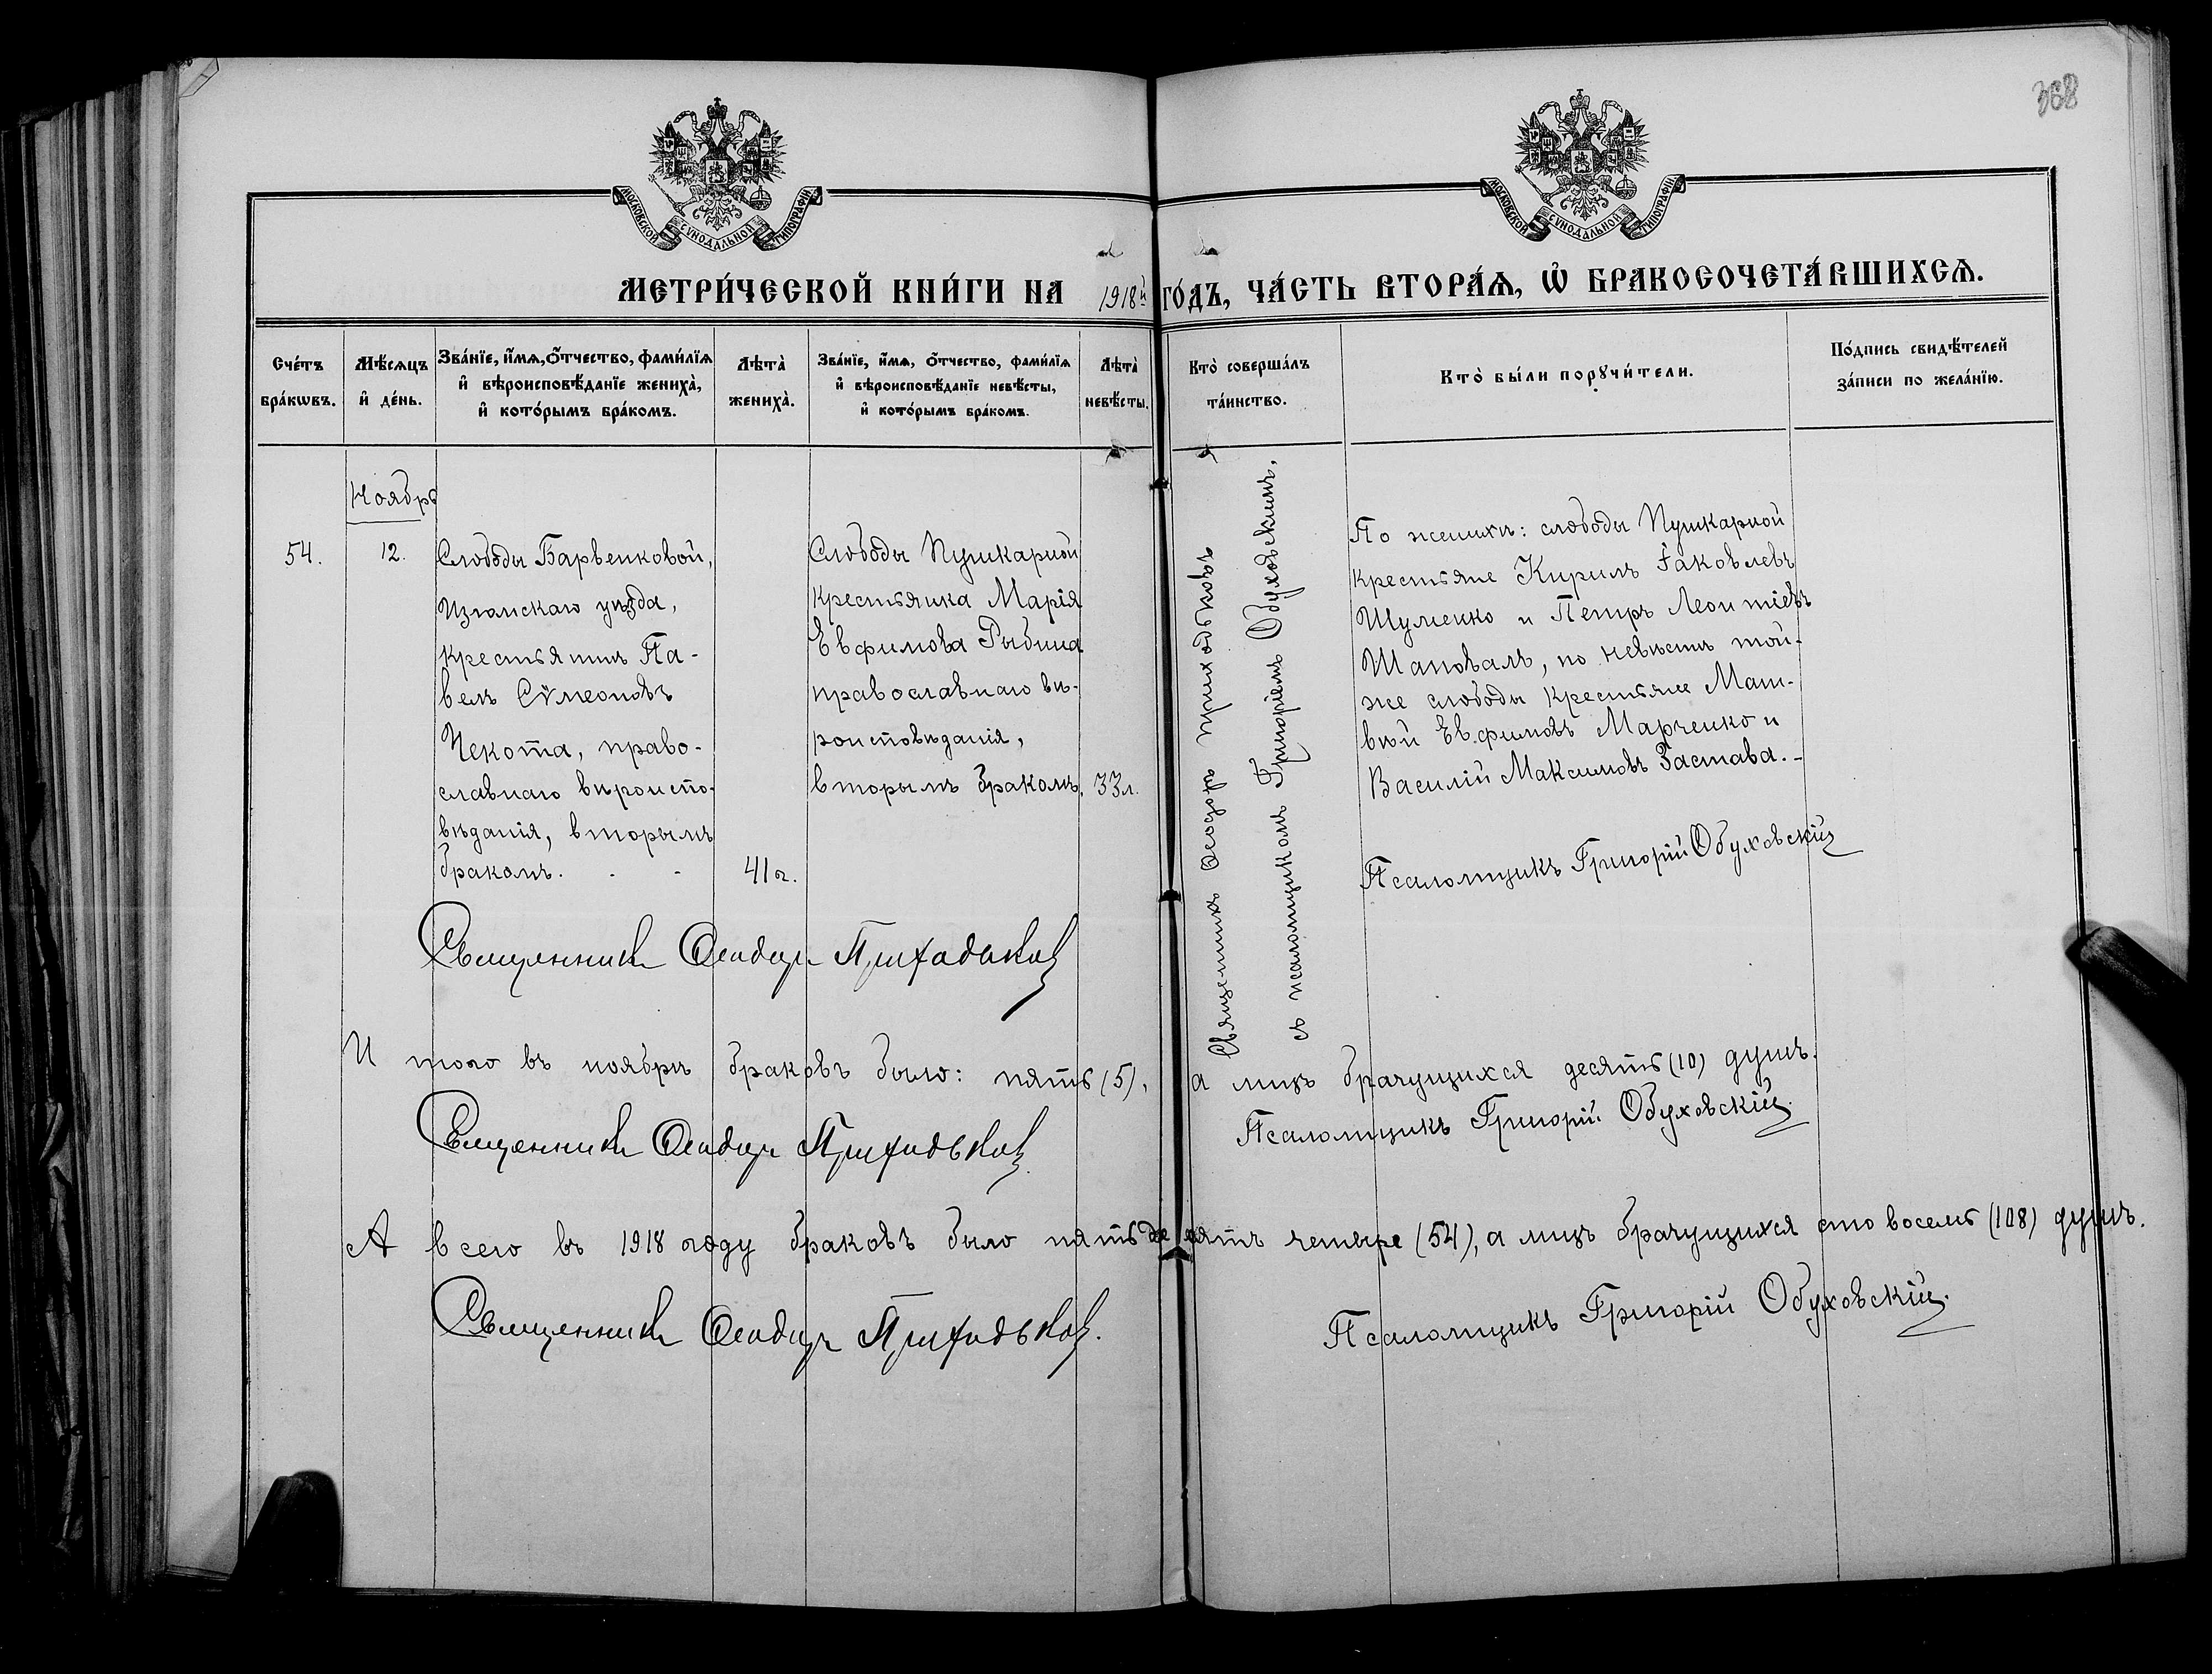 368
МОСКОВСКОЙ СѴНОДАЛЬНОЙ ТИПОГРАФІИ.
МОСКОВСКОЙ СѴНОДАЛЬНОЙ ТИПОГРАФІИ.
МЕТРИ́ЧЕСКОЙ КНИ́ГИ НА 1918й ГО́ДЪ, ЧА́СТЬ ВТОРА́Ѧ, Ѡ҆ БРАКОСОЧЕТА́ВШИХСѦ.
Сче́тъ
бра́кѡвъ.
Мѣ́сѧцъ
и҆ де́нь.
Зва́нїе, и҆́мѧ, ѻ҆́тчество, фами́лїѧ
и҆ вѣроисповѣ́данїе жениха̀,
и҆ кото́рымъ бра́комъ.
Лѣта̀
жениха̀.
Зва́нїе, и҆́мѧ, ѻ҆́тчество, фами́лїѧ
и҆ вѣроисповѣ́данїе невѣ́сты,
и҆ кото́рымъ бра́комъ.
Лѣта̀
невѣ́сты.
Кто̀ соверша́лъ
та́инство.
Кто̀ бы́ли порꙋчи́тели.
По́дпись свидѣ́телей
за́писи по жела́нїю.
Ноябрь
54.
12.
Слободы Барвенковой,
Изюмскаго уѣзда,
крестьянинъ Па-
велъ Сѵмеоновъ
Чекота, право-
славнаго вѣроиспо-
вѣданія, вторымъ
бракомъ. . -
41 г.
Слободы Пушкарной
крестьянка Марія
Евфимова Рыбина
православнаго вѣ-
роисповѣданія,
вторымъ бракомъ.
33 л.
Священникъ Ѳеодоръ Приходьковъ
съ псаломщикомъ Григоріемъ Обуховскимъ.
По женихѣ: слободы Пушкарной
крестьяне Кирилъ Іаковлевъ
Шуменко и Петръ Леонтіевъ
Шаповалъ, по невѣстѣ той-
же слободы крестьяне Мат-
вѣй Евфимовъ Марченко и
Василій Максимовъ Застава. -
Псаломщикъ Григорій Обуховскій
Священникъ Ѳеодоръ Приходьковъ
Итого въ ноябрѣ браковъ было: пять (5), а лицъ брачущихся десять (10) душъ.
Священникъ Ѳеодоръ Приходьковъ
Псаломщикъ Григорій Обуховскій.
А всего въ 1918 году браковъ было пятьдесятъ четыре (54), а лицъ брачущихся сто восемь (108) душъ.
Священникъ Ѳеодоръ Приходьковъ.
Псаломщикъ Григорій Обуховскій.